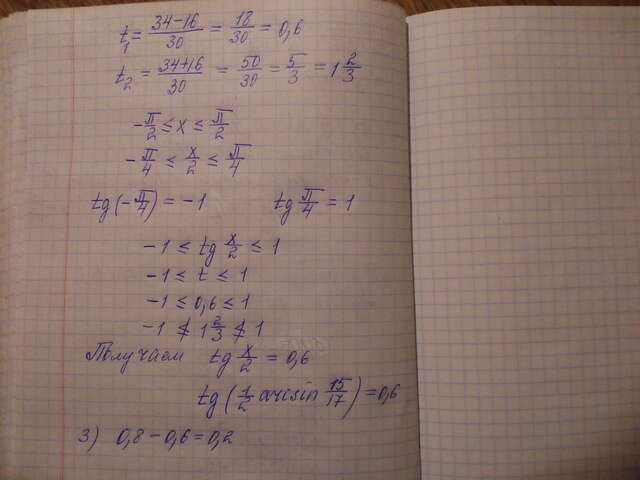 t₁ = (34-16)/30 = 18/30 = 0,6
t₂ = (34+16)/30 = 50/30 = 5/3 = 1 2/3
-π/2 ≤ x ≤ π/2
-π/4 ≤ x/2 ≤ π/4
tg(-π/4) = -1 tg π/4 = 1
-1 ≤ tg x/2 ≤ 1
-1 ≤ t ≤ 1
-1 ≤ 0,6 ≤ 1
-1 ≰ 1 2/3 ≰ 1
Получаем tg x/2 = 0,6
tg(1/2 arcsin 15/17) = 0,6
3) 0,8 - 0,6 = 0,2